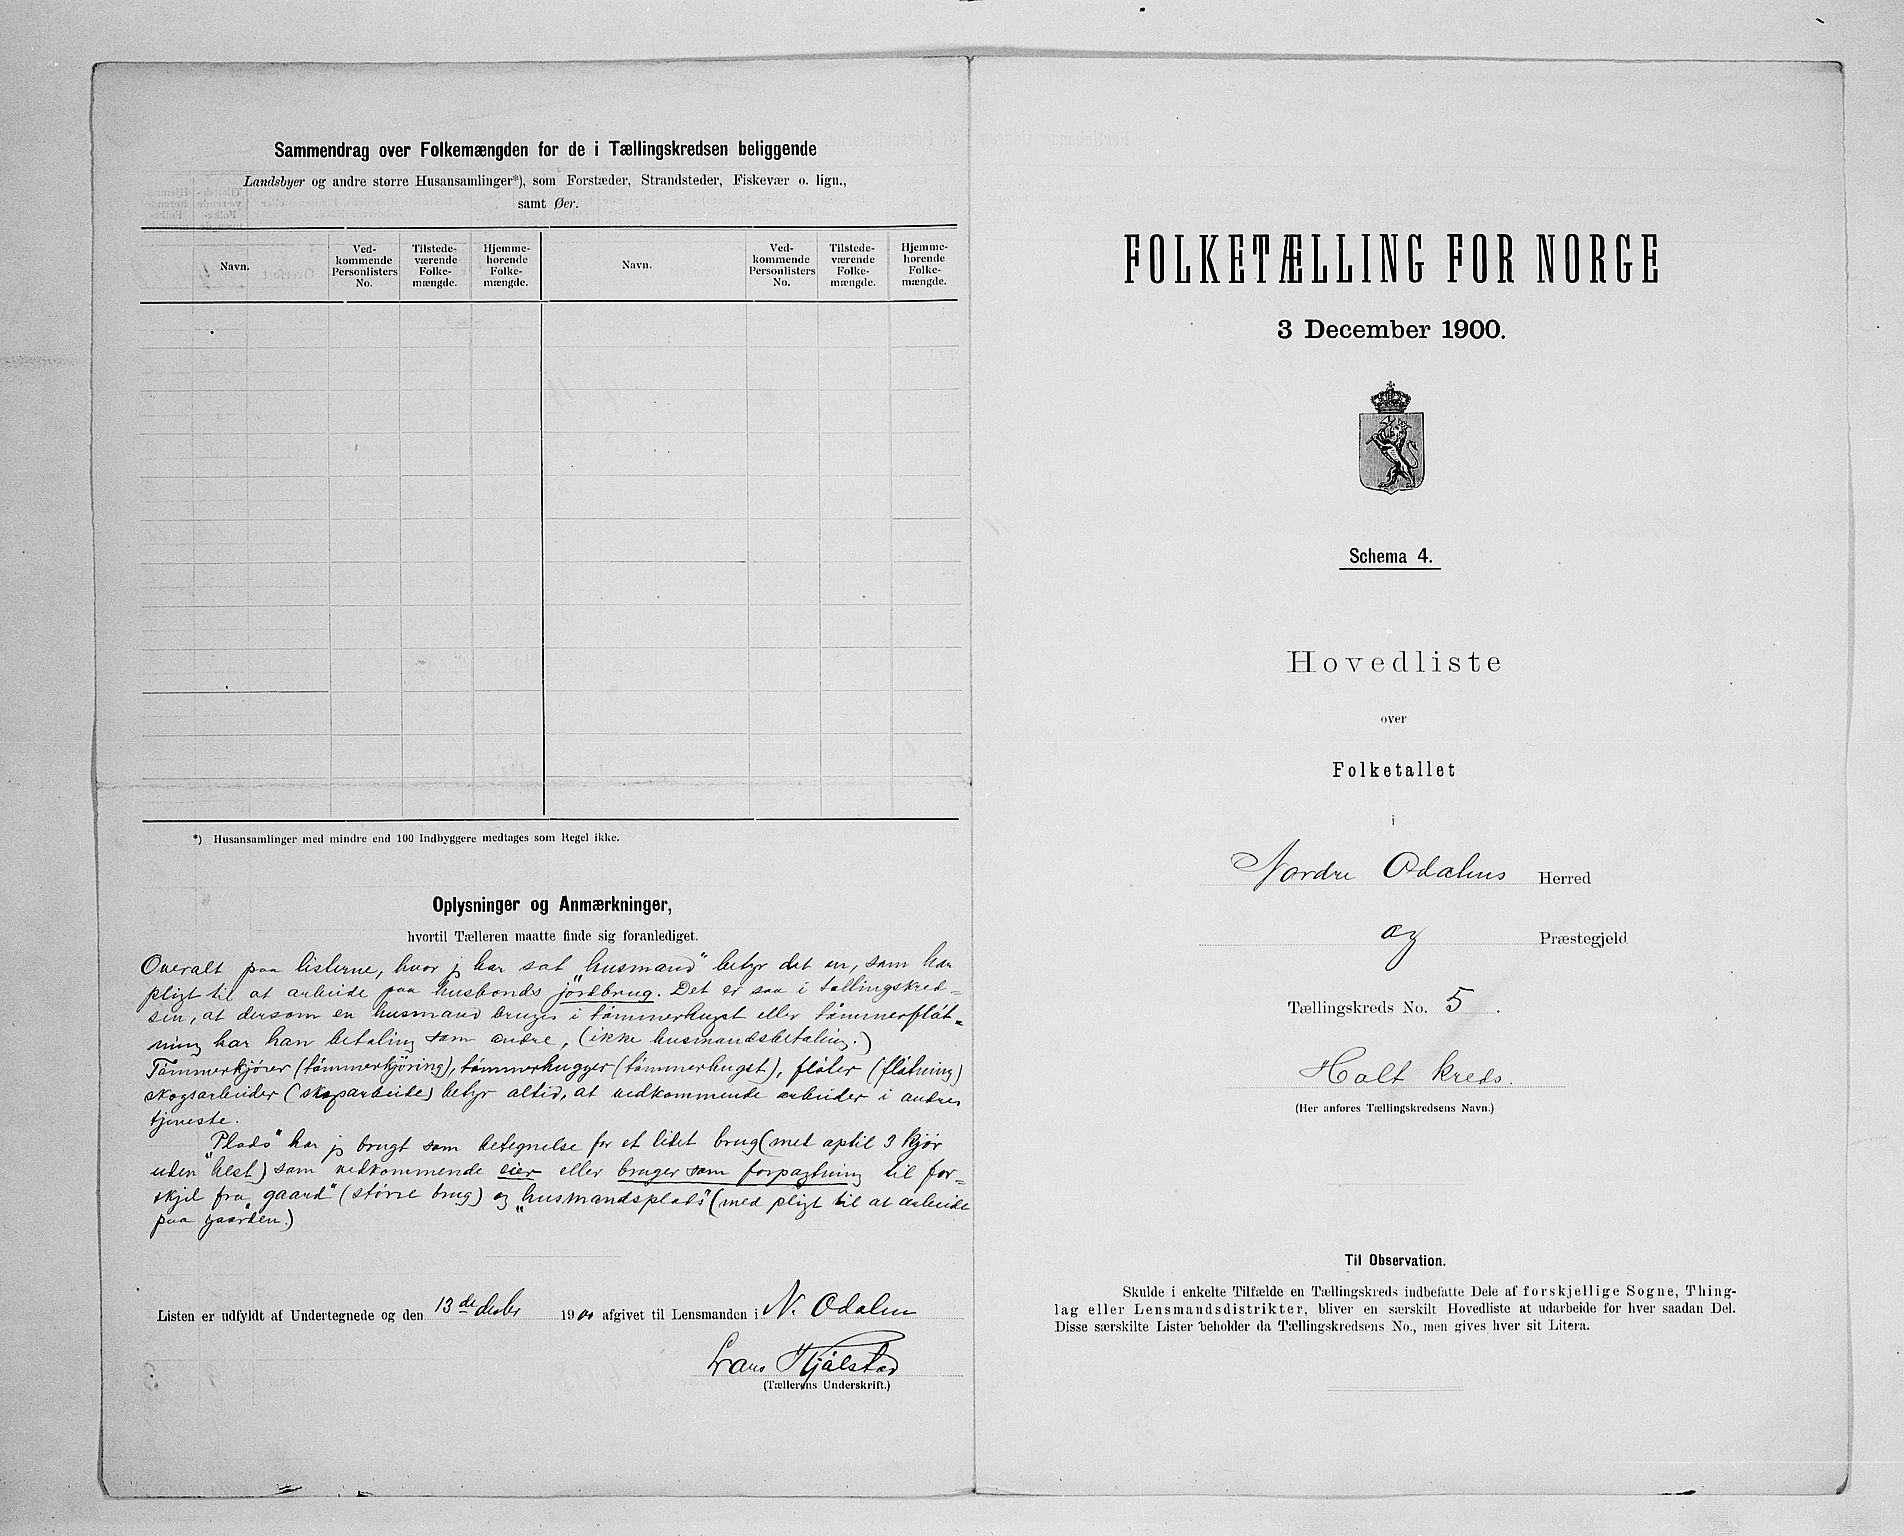 Sammendrag over Folkemængden for de i Tællingskredsen beliggende
Landsbyer og andre større Husansamlinger*), som Forstæder, Strandsteder, Fiskevær o. lign.,
samt Øer.
Navn.
Ved-
kommende
Personlisters
No.
Tilstede-
værende
Folke-
mængde.
Hjemme-
hørende
Folke-
mængde.
Navn.
Ved-
kommende
Personlisters
No.
Tilstede-
værende
Folke-
mængde.
Hjemme-
hørende
Folke-
mængde.
*) Husansamlinger med mindre end 100 Indbyggere medtages som Regel ikke.
Oplysninger og Anmærkninger,
hvortil Tælleren maatte finde sig foranlediget.
Overalt paa listerne, hvor jeg har sat „husmand" betyr det en, som har
pligt til at arbeide paa husbonds jordbrug. Det er saa i tællingskred-
sen, at dersom en husmand bruges i tømmerhugst eller tømmerfløt-
ning har han betaling som andre, (ikke husmandsbetaling.)
Tømmerkjører (tømmerkjøring), tømmerhugger (tømmerhugst), fløter (fløtning)
skogsarbeider (skogarbeide) betyr altid, at vedkommende arbeider i andres
tjeneste.
„Plads" har jeg brugt som betegnelse for et lidet brug (met optil 3 kjør
uden hest) som vedkommende eier eller bruger som forpagtning til for-
skjel fra „gaard" (større brug) og „husmandsplads" (med pligt til at arbeide
paa gaarden.)
Listen er udfyldt af Undertegnede og den 13de decbr 1900 afgivet til Lensmanden i N. Odalen
Hjølstad
(Tællerens Underskrift.)
FOLKETÆLLING FOR NORGE
3 December 1900.
Schema 4.
Hovedliste
over
Folketallet
i
Nordre Odalens Herred
og Præstegjeld
Tællingskreds No. 5.
Holt kreds.
(Her anføres Tællingskredsens Navn.)
Til Observation.
Skulde i enkelte Tilfælde en Tællingskreds indbefatte Dele af forskjellige Sogne, Thing-
lag eller Lensmandsdistrikter, bliver en særskilt Hovedliste at udarbeide for hver saadan Del.
Disse særskilte Lister beholder da Tællingskredsens No., men gives hver sit Litera.